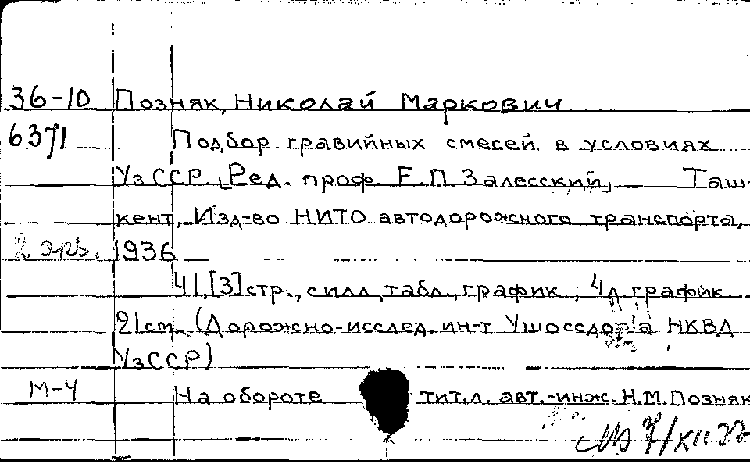 36-10 Позняк, Николай Маркович
6371 Подбор гравийных смесей в условиях
УзССР. Ред. проф. Е.П. Залесский, Таш-
кент, Изд-во НИТО автодорожного транспорта,
2 экз. 1936
41, [3] стр., с илл, табл, график, 4 л. график
21 см. (Дорожно-исслед. ин-т Ушоссдор'а НКВД
УзССР)
М-4 На обороте тит.л. авт.-инж. Н.М. Позняк